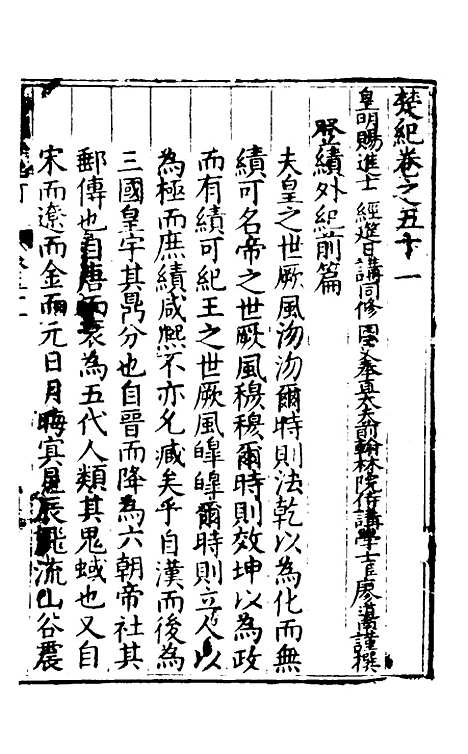 楚紀卷之五十一
皇明賜進士 經筵日講同修 國史奉直大夫前翰林院侍講學士臣廖道南謹撰
登績外紀前篇
夫皇之世厥風沕沕爾時則法乾以為化而無
績可名帝之世厥風穆穆爾時則效坤以為政
而有績可紀王之世厥風皥皥爾時則立人以
為極而庶績咸熙不亦允臧矣乎自漢而後為
三國皇宇其鼎分也自晉而降為六朝帝社其
郵傳也自唐而衰為五代人類其鬼蜮也又自
宋而遼而金而元日月晦㝠星辰飛流山谷震